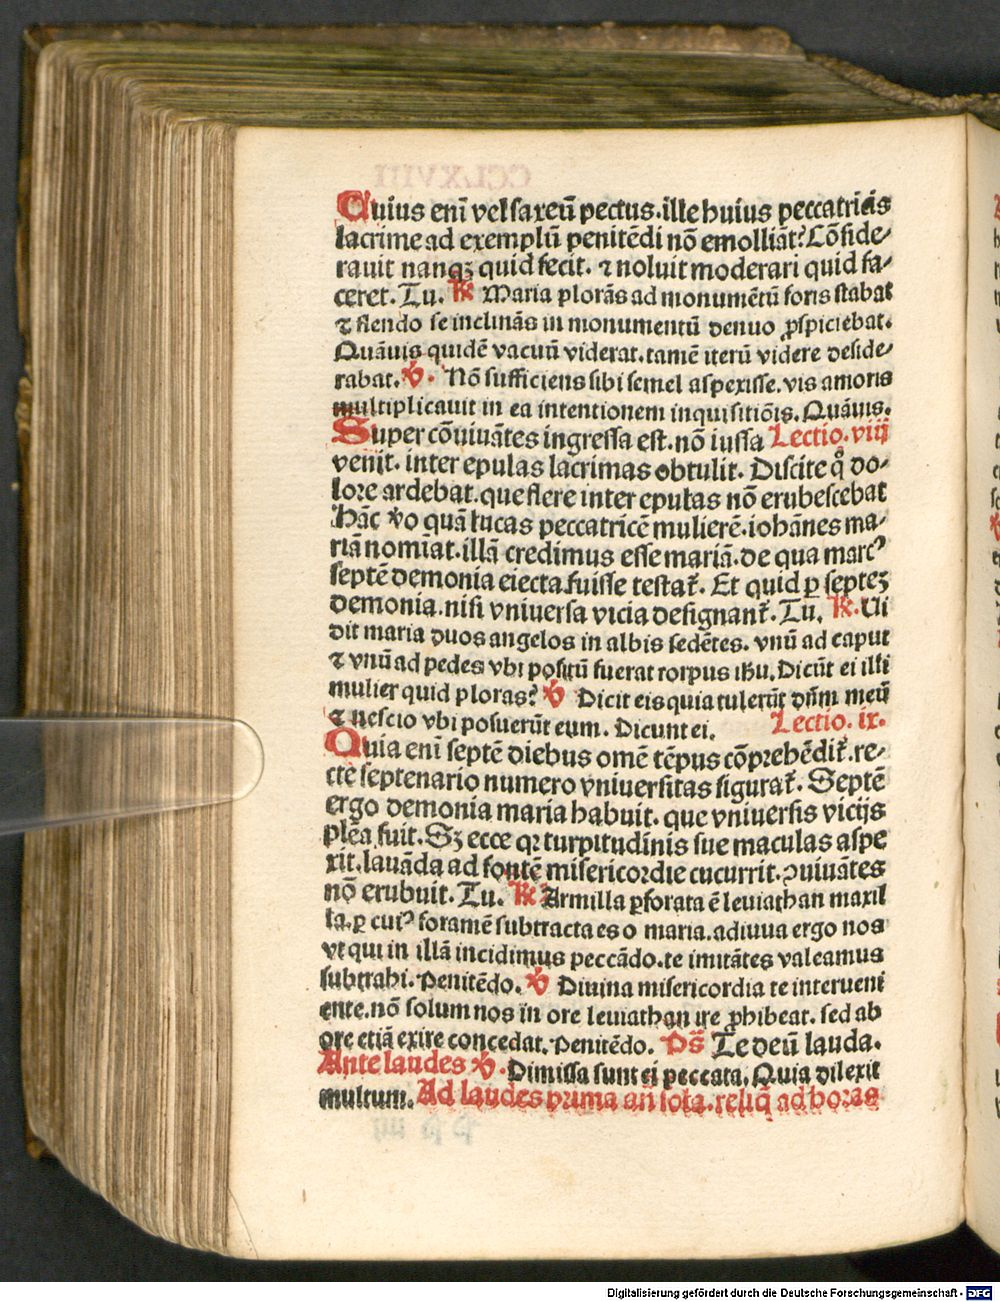 Cuius eni̅ vel saxeu̅ pectus. ille huius peccatricis
lacrime ad exemplu̅ penite̅di no̅ emollia̅t? Co̅side-
rauit nanqꝫ quid fecit. ⁊ noluit moderari quid fa-
ceret. Tu. ℟ Maria plora̅s ad monume̅tu̅ foris stabat
⁊ flendo se inclina̅s in monumentu̅ denuo ꝓspiciebat.
Qua̅uis quide̅ vacuu̅ viderat. tame̅ iteru̅ videre deside-
rabat. ℣. No̅ sufficiens sibi semel aspexisse. vis amoris
multiplicauit in ea intentionem inquisitio̅is. Qua̅uis.
Super co̅uiua̅tes ingressa est. no̅ iussa Lectio. viij
venit. inter epulas lacrimas obtulit. Discite qͦ do-
lore ardebat. que flere inter epulas no̅ erubescebat
Ha̅c ℣o qua̅ lucas peccatrice̅ muliere̅. ioha̅nes ma-
ria̅ nomi̅at. illa̅ credimus esse maria̅. de qua marcꝰ
septe̅ demonia eiecta fuisse testat᷑. Et quid ꝑ septeꝫ
demonia. nisi vniuersa vicia designant᷑. Tu. ℟. Ui
dit maria duos angelos in albis sede̅tes. vnu̅ ad caput
⁊ vnu̅ ad pedes vbi positu̅ fuerat rorpus ihu. Dicu̅t ei illi
mulier quid ploras? ℣ Dicit eis quia tuleru̅t dn̅m meu̅
⁊ nescio vbi posueru̅t eum. Dicunt ei. Lectio. ix.
Quia eni̅ septe̅ diebus ome̅ te̅pus co̅prehe̅dit᷑. re-
cte septenario numero vniuersitas figurat᷑. Septe̅
ergo demonia maria habuit. que vniuersis vicijs
ple̅a fuit. Sꝫ ecce qꝛ turpitudinis sue maculas aspe
xit. laua̅da ad fonte̅ misericordie cucurrit. ꝯuiua̅tes
no̅ erubuit. Tu. ℟ Armilla ꝑforata e̅ leuiathan maxil
la. ꝑ cuiꝰ forame̅ subtracta es o maria. adiuua ergo nos
vt qui in illa̅ incidimus pecca̅do. te imita̅tes valeamus
subtrahi. Penite̅do. ℣ Diuina misericordia te interueni
ente. no̅ solum nos in ore leuiathan ire ꝓhibeat. sed ab
ore etia̅ exire concedat. Penite̅do. Ps̅ Te deu̅ lauda.
Ante laudes ℣. Dimissa sunt ei peccata. Quia dilexit
multum. Ad laudes prima an̅ sola. reliq̅ ad horas
Digitalisierung gefördert durch die Deutsche Forschungsgemeinschaft - DFG